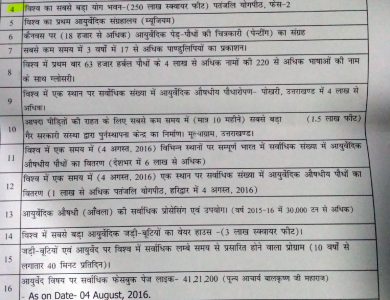 4 विश्व का सबसे बड़ा योग भवन–(250 लाख स्क्वायर फीट) पतंजलि योगपीठ, फेस-2
5 विश्व का प्रथम आयुर्वेदिक संग्रहालय (म्यूजियम)
6 कैनवस पर (18 हजार से अधिक) आयुर्वेदिक पेड़-पौधों की चित्रकारी (पेन्टींग) का संग्रह
7 सबसे कम समय में 3 वर्षो में 17 से अधिक पाण्डुलिपियों का प्रकाशन।
8 विश्व में प्रथम बार 63 हजार हर्बल पौधों के 4 लाख से अधिक नामों की 220 से अधिक भाषाओं की नाम
के साथ ग्लोसरी।
9 विश्व में एक स्थान पर सर्वाधिक संख्या में आयुर्वेदिक औषधीय पौधारोपण- पोखरी, उत्तराखण्ड में 4 लाख से
अधिक।
10 आपदा पीड़ितों की राहत के लिए सबसे कम समय में ( मात्र 10 महीने) सबसे बड़ा (1.5 लाख फीट)
गैर सरकारी संस्था द्वारा पुर्नस्थापना केन्द्र का निर्माण। उत्तराखण्ड।
11 विश्व में एक समय में (4 अगस्त, 2016) विभिन्न स्थानों पर सम्पूर्ण भारत में सर्वाधिक संख्या में आयुर्वेदिक
औषधीय पौधों का वितरण (देशभर में 6 लाख से अधिक)
12 विश्व में एक समय में (4 अगस्त, 2016) एक स्थान पर सर्वाधिक संख्या में आयुर्वेदिक औषधीय पौधों का
वितरण (1 लाख से अधिक पतंजलि योगपीठ, हरिद्वार में 4 अगस्त, 2016)
13 आयुर्वेदिक औषधी (आँवला) की सर्वाधिक प्रोसेसिंग एवं उपयोग। (वर्ष 2015-16 में 30,000 टन से अधिक)
14 विश्व में सबसे बड़ा आयुर्वेदिक जड़ी-बूटियों का वेयर हाउस -(3 लाख स्क्वायर फीट)।
15 जड़ी-बूटीयों एवं आयुर्वेद पर विश्व में सर्वाधिक लम्बे समय से प्रसारित होने वाला प्रोग्राम (10 वर्षों से
लगातार 40 मिनट प्रतिदिन)।
16 आयुर्वेद विषय पर सर्वाधिक फेसबुक पेज लाइक- 41,21,200 (पूज्य आचार्य बालकृष्ण जी महाराज)
- As on Date- 04 August, 2016.